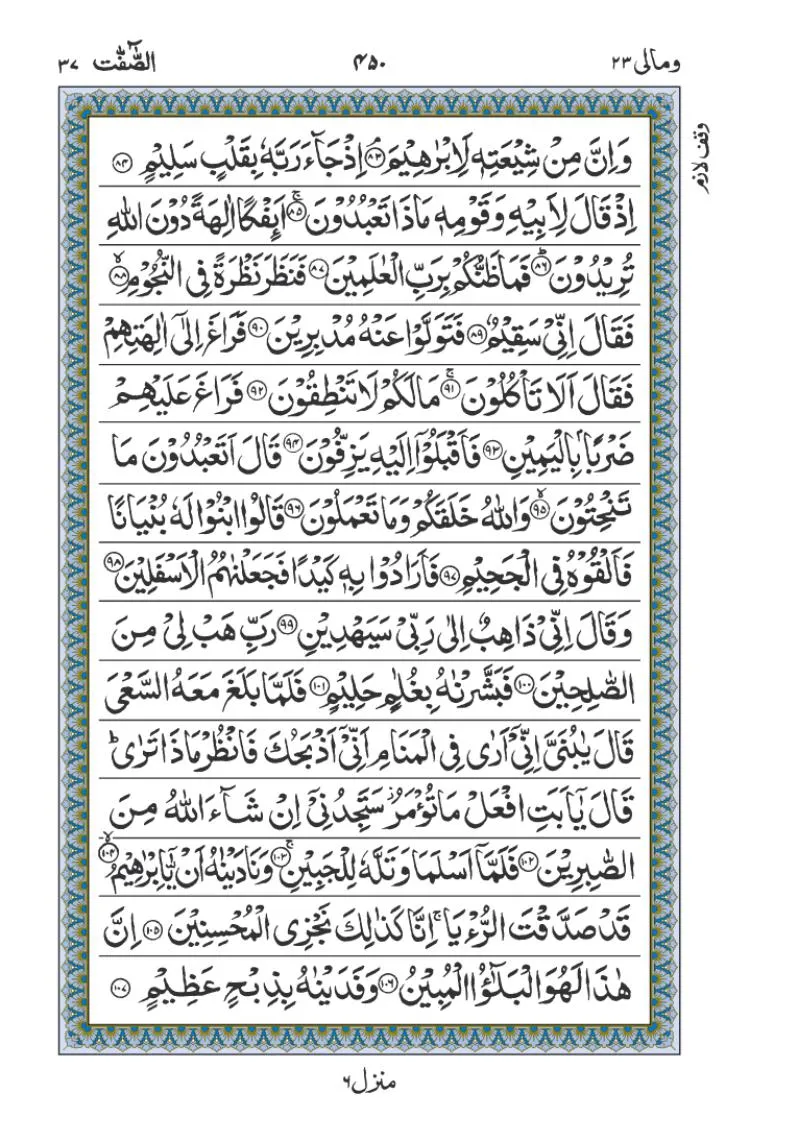 ومالی ۲۳
۴۵۰
الصّٰٓفّٰت ۳۷
وقف لازم
وَاِنَّ مِنْ شِيْعَتِهٖ لَاِبْرٰهِيْمَ ۘ ۸۳ اِذْ جَآءَ رَبَّهٗ بِقَلْبٍ سَلِيْمٍ ۸۴
اِذْ قَالَ لِاَبِيْهِ وَقَوْمِهٖ مَاذَا تَعْبُدُوْنَ ۚ ۸۵ اَىِٕفْكًا اٰلِهَةً دُوْنَ اللّٰهِ
تُرِيْدُوْنَ ؕ ۸۶ فَمَا ظَنُّكُمْ بِرَبِّ الْعٰلَمِيْنَ ۸۷ فَنَظَرَ نَظْرَةً فِى النُّجُوْمِ ۙ ۸۸
فَقَالَ اِنِّىْ سَقِيْمٌ ۸۹ فَتَوَلَّوْا عَنْهُ مُدْبِرِيْنَ ۹۰ فَرَاغَ اِلٰٓى اٰلِهَتِهِمْ
فَقَالَ اَلَا تَاْكُلُوْنَ ۚ ۹۱ مَا لَكُمْ لَا تَنْطِقُوْنَ ۹۲ فَرَاغَ عَلَيْهِمْ
ضَرْبًۢا بِالْيَمِيْنِ ۹۳ فَاَقْبَلُوْۤا اِلَيْهِ يَزِفُّوْنَ ۹۴ قَالَ اَتَعْبُدُوْنَ مَا
تَنْحِتُوْنَ ۙ ۹۵ وَاللّٰهُ خَلَقَكُمْ وَمَا تَعْمَلُوْنَ ۹۶ قَالُوا ابْنُوْا لَهٗ بُنْيَانًا
فَاَلْقُوْهُ فِى الْجَحِيْمِ ۹۷ فَاَرَادُوْا بِهٖ كَيْدًا فَجَعَلْنٰهُمُ الْاَسْفَلِيْنَ ۹۸
وَقَالَ اِنِّىْ ذَاهِبٌ اِلٰى رَبِّىْ سَيَهْدِيْنِ ۹۹ رَبِّ هَبْ لِىْ مِنَ
الصّٰلِحِيْنَ ۱۰۰ فَبَشَّرْنٰهُ بِغُلٰمٍ حَلِيْمٍ ۱۰۱ فَلَمَّا بَلَغَ مَعَهُ السَّعْىَ
قَالَ يٰبُنَىَّ اِنِّىْۤ اَرٰى فِى الْمَنَامِ اَنِّىْۤ اَذْبَحُكَ فَانْظُرْ مَاذَا تَرٰى ؕ
قَالَ يٰۤاَبَتِ افْعَلْ مَا تُؤْمَرُ ۫ سَتَجِدُنِىْۤ اِنْ شَآءَ اللّٰهُ مِنَ
الصّٰبِرِيْنَ ۱۰۲ فَلَمَّاۤ اَسْلَمَا وَتَلَّهٗ لِلْجَبِيْنِ ۚ ۱۰۳ وَنَادَيْنٰهُ اَنْ يّٰۤاِبْرٰهِيْمُ ۙ ۱۰۴
قَدْ صَدَّقْتَ الرُّءْيَا ۚ اِنَّا كَذٰلِكَ نَجْزِى الْمُحْسِنِيْنَ ۱۰۵ اِنَّ
هٰذَا لَهُوَ الْبَلٰٓؤُا الْمُبِيْنُ ۱۰۶ وَفَدَيْنٰهُ بِذِبْحٍ عَظِيْمٍ ۱۰۷
منزل ۶